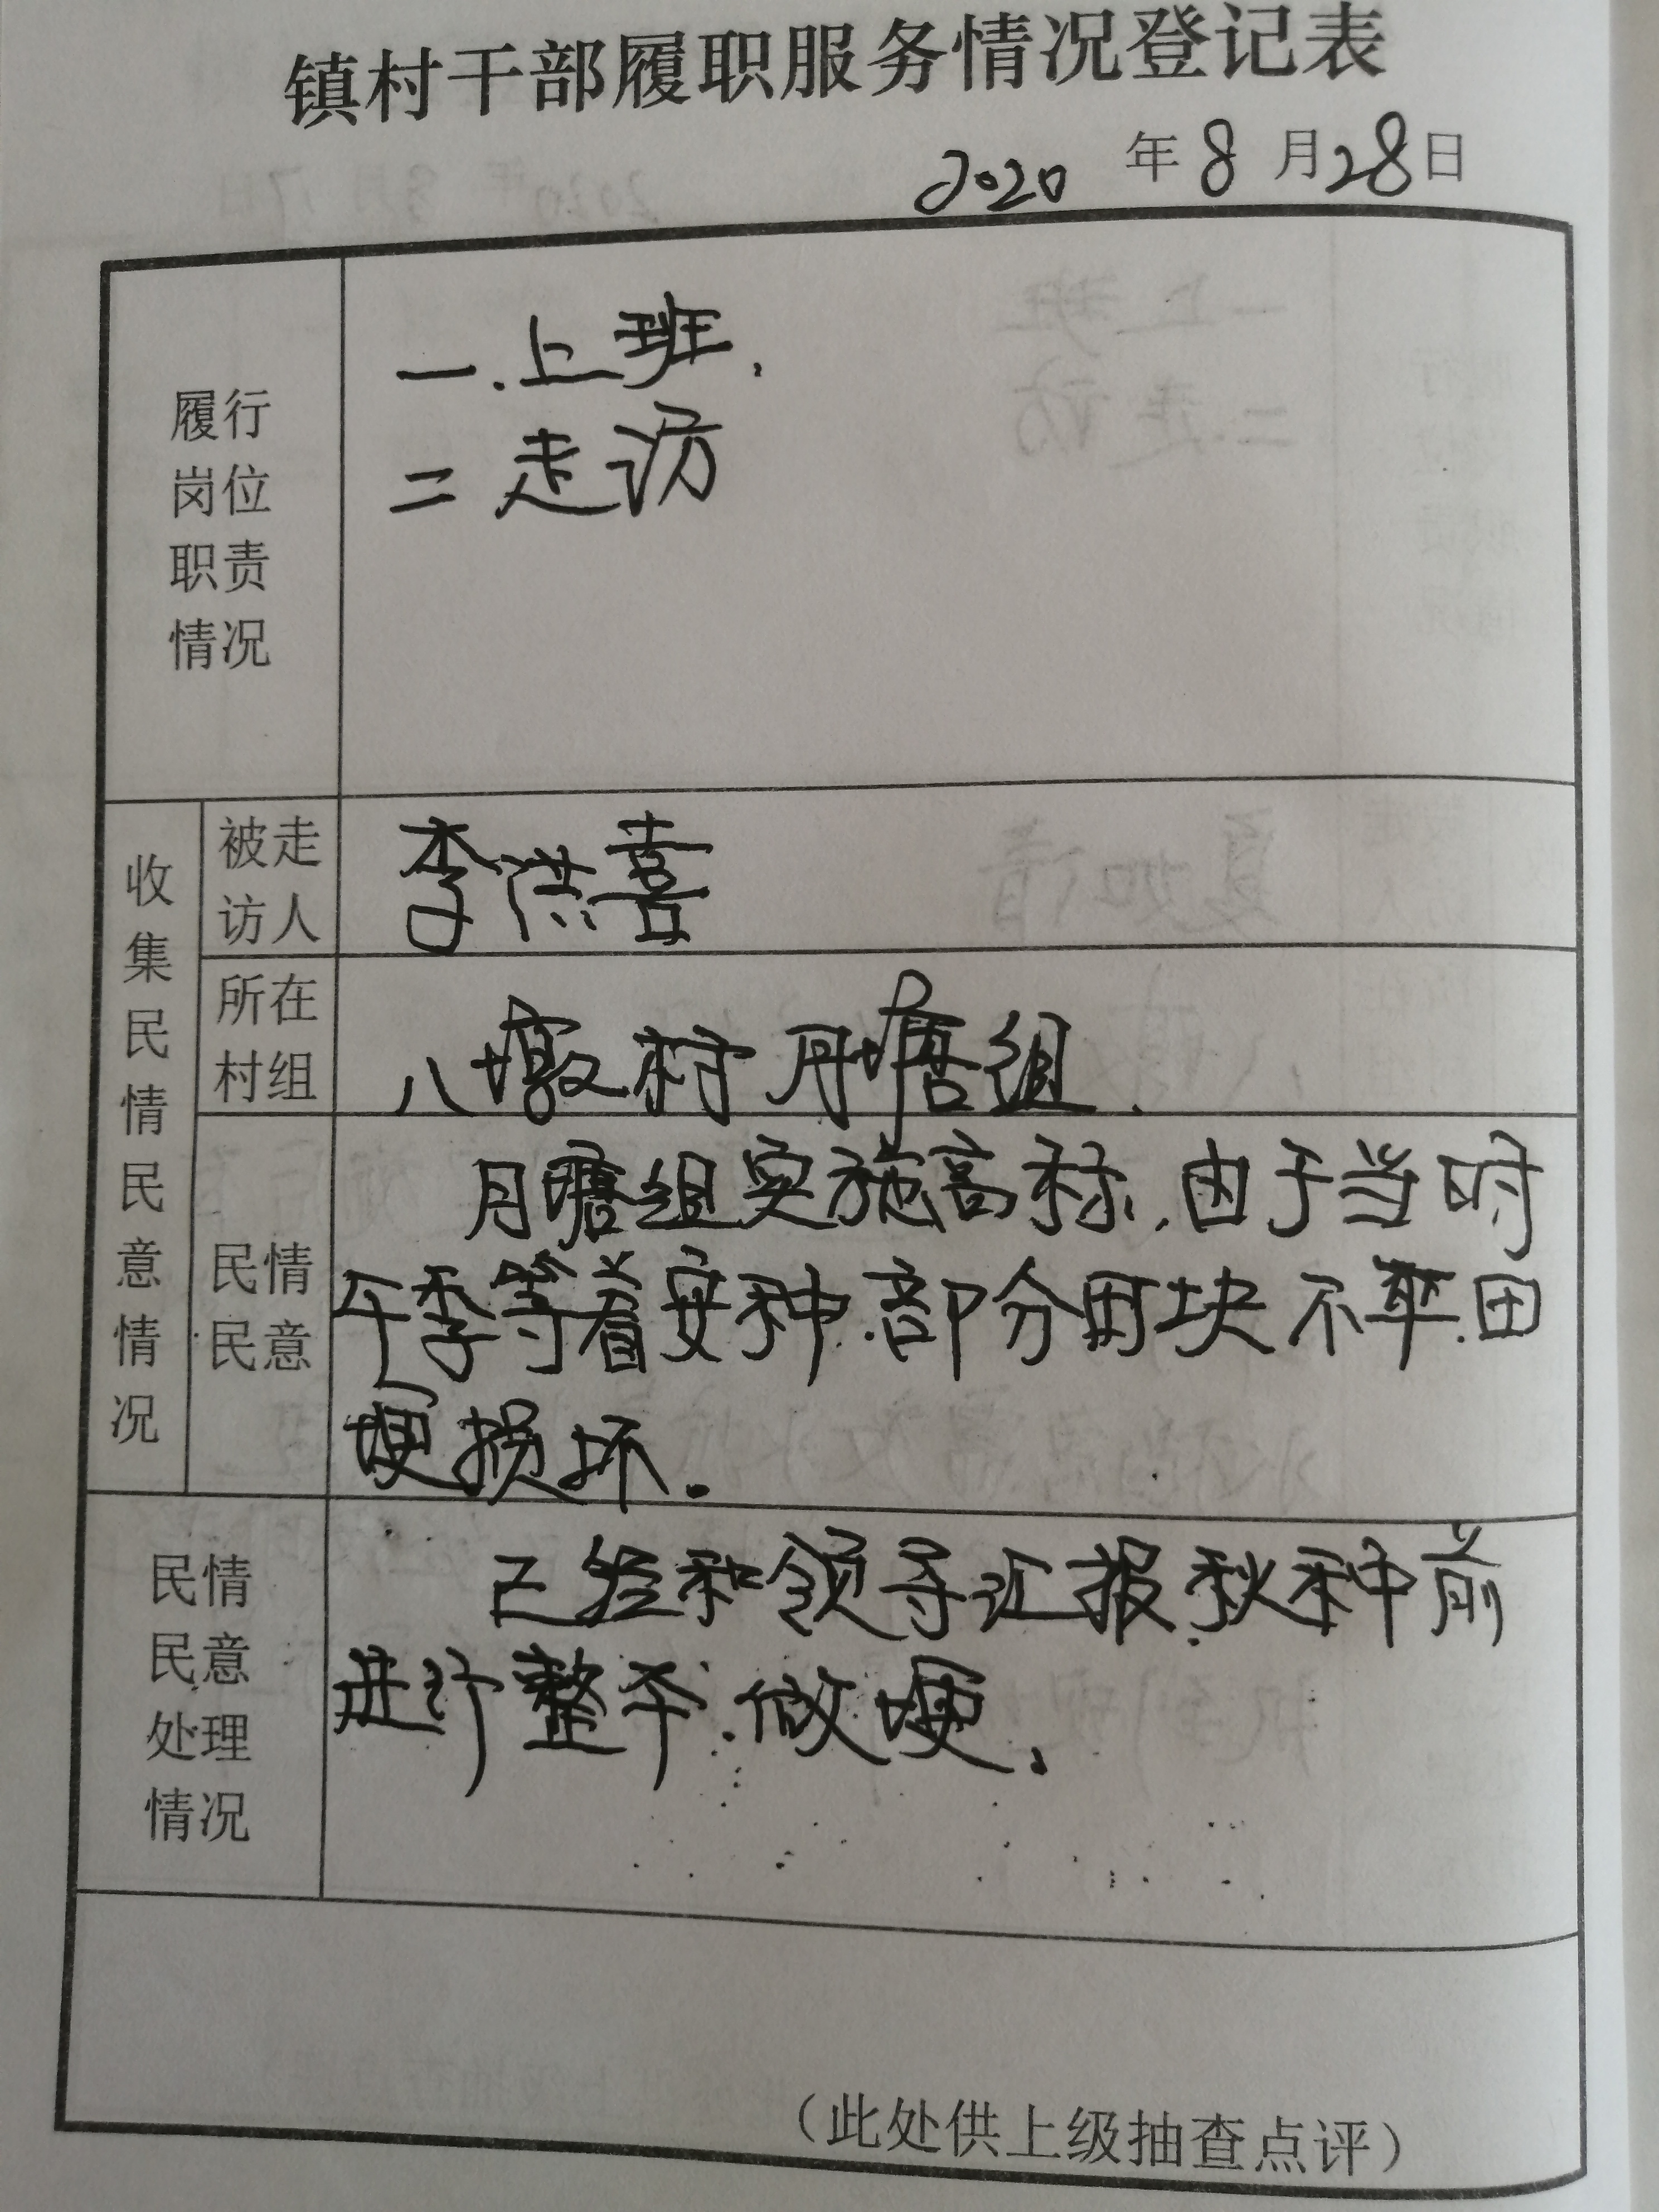 镇村干部履职服务情况登记表
2020年8月28日
履行
岗位
职责
情况
一.上班.
二走访
收集民情民意情况
被走
访人
李洪喜
所在
村组
八墩村月塘组.
民情
民意
月塘组实施高标,由于当时
午季等着要种.部分田块不平.田
埂损坏。
民情
民意
处理
情况
已经和领导汇报.秋种前
进行整平.做埂.
(此处供上级抽查点评)